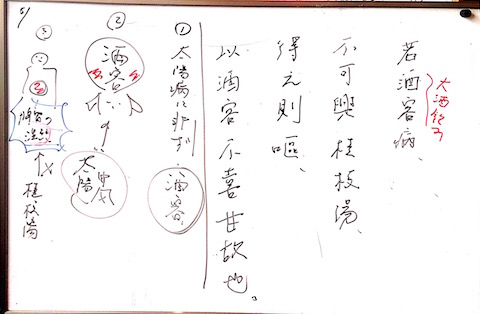 若酒客病、
大酒飲み
不可與桂枝湯、
得之則嘔、
以酒客不喜甘故也。
①
太陽病に非ず
酒客
②
酒客
太陽
中風
③
酒客の
湿熱
桂枝湯